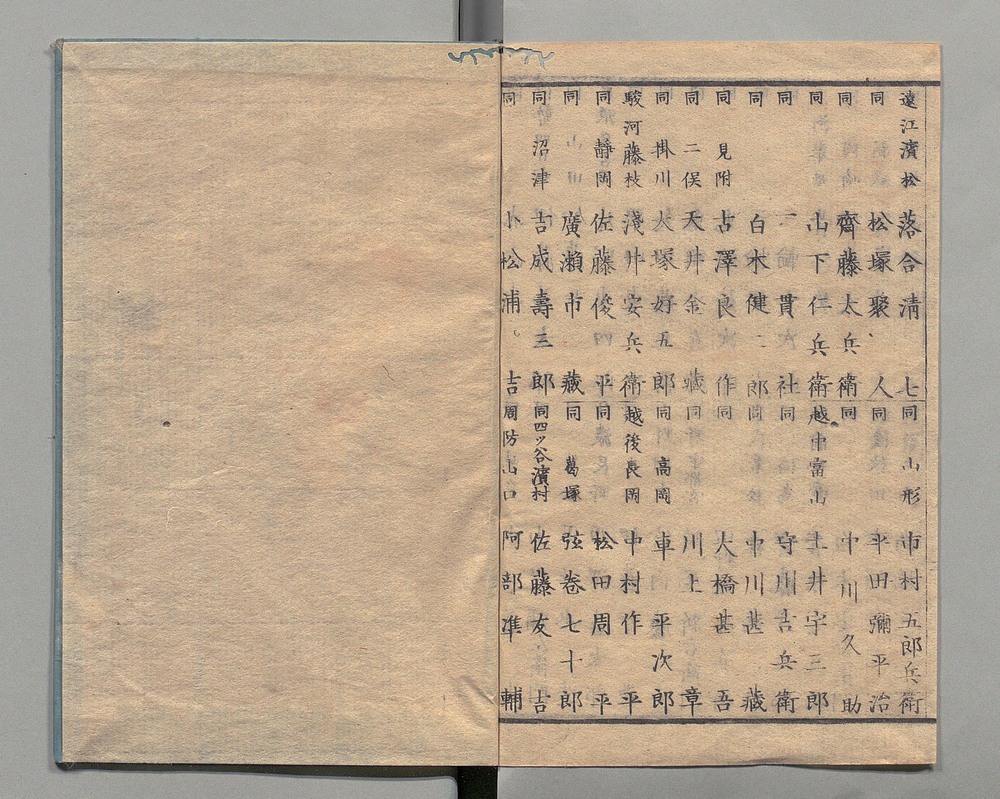 遠江濱松 落合淸七
同 松塚聚人
同 齊藤太兵衛
同 山下仁兵衛
同 一輪貫社
同 白木健二郎
同 見附 古澤良作
同 二俣 天井金藏
同 掛川 大塚好五郎
駿河藤枝 淺井安兵衛
同 靜岡 佐藤俊平
同 廣瀬市藏
同 沼津 吉成壽三郎
同 小松浦吉
同 山形 市村五郎兵衛
同 平田彌平治
同 中川久助
越中富山 土井宇三郎
同 守川吉兵衛
同 中川甚藏
同 大橋甚吾
同 川上章
同 高岡 車平次郎
越後長岡 中村作平
同 松田周平
同 葛塚 弦卷七十郎
同四ツ谷濱村 佐藤友吉
周防山口 阿部準輔